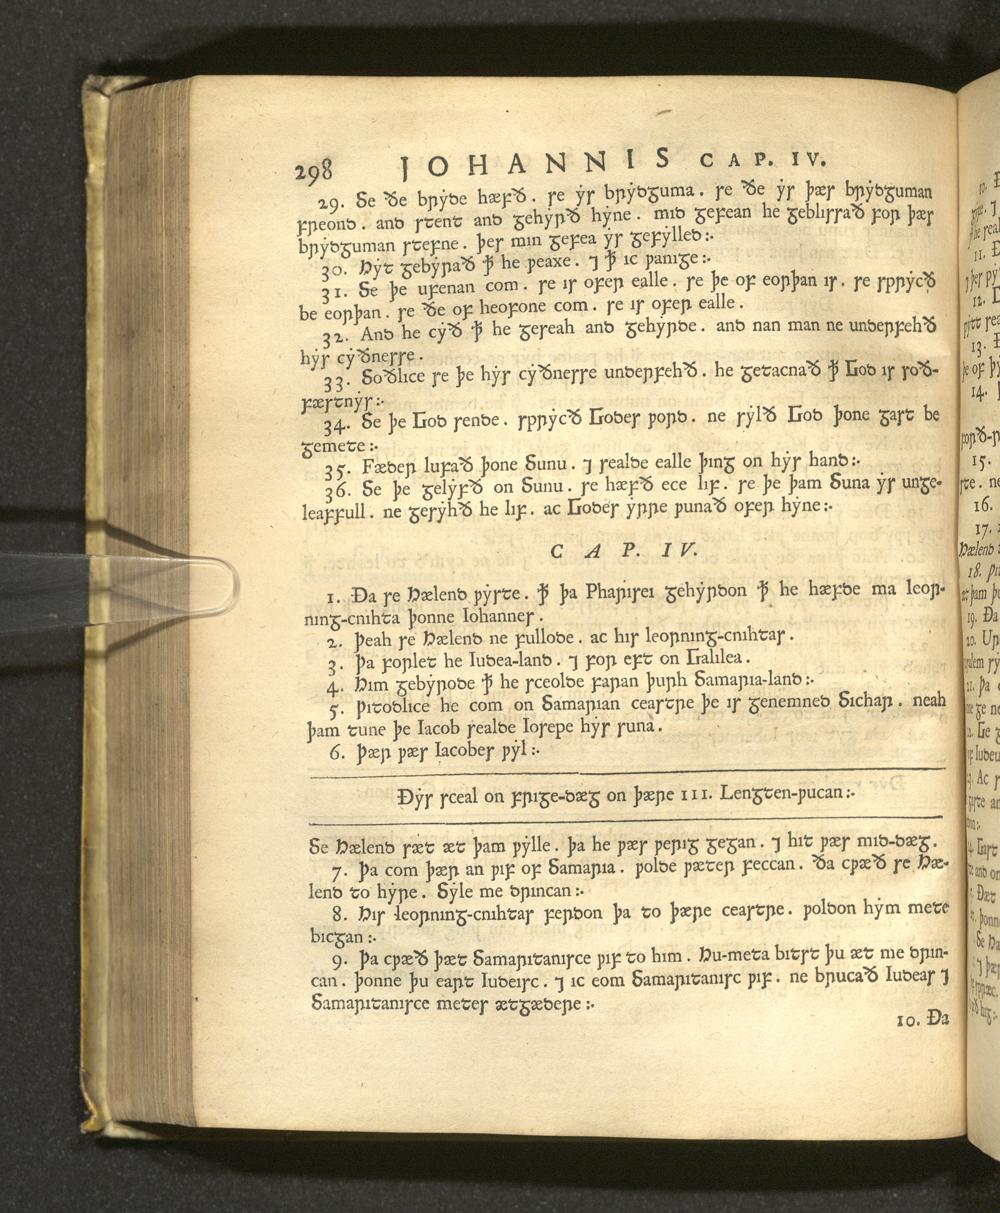 298 JOHANNIS CAP. IV.
29. Se ðe brẏde hæfð. se ẏs brẏdguma. se ðe ẏs þæs brẏdguman
freond. and stent and gehẏrð hẏne. mid gefean he geblissað for þæs
brẏdguman stefne. þes min gefea ẏs gefẏlled:.
30. Hẏt gebẏrað ꝥ he ƿeaxe. ⁊ ꝥ ic ƿanige:.
31. Se þe ufenan com. se is ofer ealle. se þe of eorþan is. se sprẏcð
be eorþan. se ðe of heofone com. se is ofer ealle.
32. And he cẏð ꝥ he geseah and gehẏrde. and nan man ne underfehð
hẏs cẏðnesse.
33. Soðlice se þe hẏs cẏðnesse underfehð. he getacnað ꝥ God is soð-
fæstnẏs:.
34. Se þe God sende. sprẏcð Godes ƿord. ne sẏlð God þone gast be
gemete:.
35. Fæder lufað þone Sunu. ⁊ sealde ealle þing on hẏs hand:.
36. Se þe gelẏfð on Sunu. se hæfð ece lif. se þe þam Suna ẏs unge-
leaffull. ne gesẏhð he lif. ac Godes ẏrre ƿunað ofer hẏne:.
CAP. IV.
1. Ða se Hælend ƿẏste. ꝥ þa Pharisei gehẏrdon ꝥ he hæfde ma leor-
ning-cnihta þonne Iohannes.
2. Þeah se Hælend ne fullode. ac his leorning-cnihtas.
3. Þa forlet he Iudea-land. ⁊ for eft on Galilea.
4. Him gebẏrode ꝥ he sceolde faran þurh Samaria-land:.
5. Ƿitodlice he com on Samarian ceastre þe is genemned Sichar. neah
þam tune þe Iacob sealde Iosepe hẏs suna.
6. Þær ƿæs Iacobes ƿẏl:.
Ðẏs sceal on frige-dæg on þære III. Lengten-ƿucan:.
Se Hælend sæt æt þam ƿẏlle. þa he ƿæs ƿerig gegan. ⁊ hit ƿæs mid-dæg.
7. Þa com þær an ƿif of Samaria. ƿolde ƿæter feccan. ða cƿæð se Hæ-
lend to hẏre. Sẏle me drincan:.
8. His leorning-cnihtas ferdon þa to þære ceastre. ƿoldon hẏm mete
bicgan:.
9. Þa cƿæð þæt Samaritanisce ƿif to him. Hu-meta bitst þu æt me drin-
can. þonne þu eart Iudeisc. ⁊ ic eom Samaritanisc ƿif. ne brucað Iudeas ⁊
Samaritanisce metes ætgædere:.
10. Ða